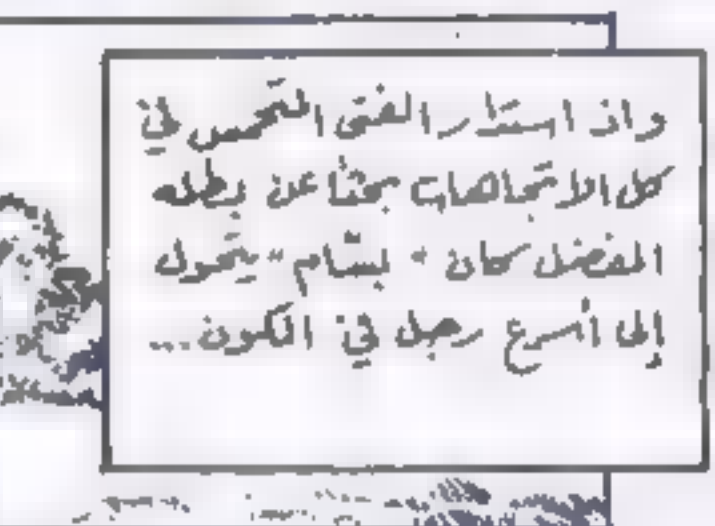 واذ استدار الفتى المتحمس في
كل الاتجاهات بحثا عن بطله
المفضل كان " بسّام " يتحول
إلى أسرع رجل في الكون...